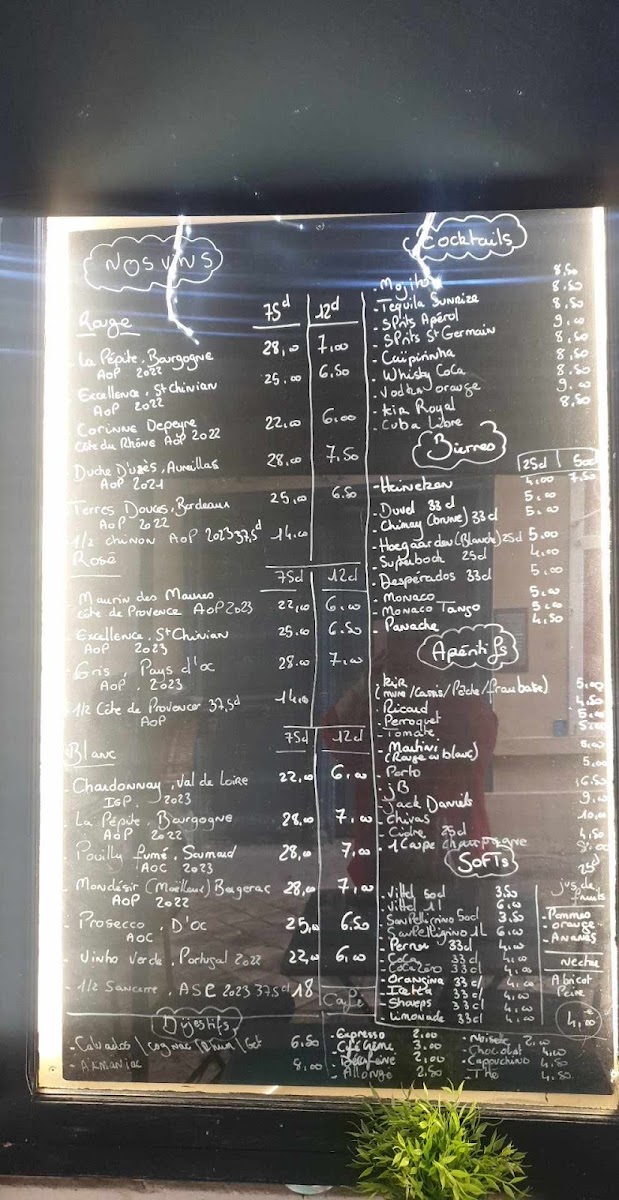 Nos vins
Rouge 75cl 12cl
La Pépite, Bourgogne 28,00 7,00
AOP 2022
Excellence, St Chinian 25,00 6,50
AOP 2022
Corinne Depeyre 22,00 6,00
Côte du Rhône AOP 2022
Duche D'uzès, Aureillas 28,00 7,50
AOP 2021
Terres Douces, Bordeaux 25,00 6.50
AOP 2022
1/2 chinon AOP 2023 37,5d 14,00
Rosé
75cl 12cl
Maurin des Maures
Côte de Provence AOP 2023 22,00 6,00
Excellence, St Chinian 25,00 6.50
AOP 2023
Gris, Pays d'oc 28,00 7,00
AOP, 2023
1/2 Côte de Provence 37,5d 14,00
AOP
75cl 12cl
Blanc
Chardonnay, Val de Loire 22,00 6,00
IGP, 2023
La Pépite, Bourgogne 28,00 7,00
AOP 2022
Pouilly fumé, 28,00 7,00
AOC 2023
Mondésir (Moëlleux) Bergerac 28,00 7,00
AOP 2022
Prosecco, D'oc 25,00 6,50
AOC
Vinho Verde, Portugal 2022 22,00 6,00
1/2 Sancerre, ASC 2023 37,5cl 18
Dijestifs
Calvados / Cognac / / Get 6.50
Armaniac
Cocktails
Mojito 8.50
Tequila Sunrize 8.50
SPrits Apérol 8.50
SPrits St Germain 9.00
Caïpirinha 8,50
Whisky Coca 8.50
Vodka orange 8.50
Kir Royal 9.00
Cuba Libre 8,50
Bierres
25cl 50cl
Heineken 4,00 7,50
Duvel 33cl 5.00
Chimay (brune) 33cl 5.00
Hoegaarden (Blanch) 25cl 5.00
Superbock 25cl 4.00
Desperados 33cl 5.00
Monaco 5.00
Monaco Tango 5.00
Panache 4,50
Apéritifs
Kir
(mure/Cassis/Pêche/framboise) 5,00
Ricard 4,50
Perroquet 5,00
Tomate 5,00
Martini 6,00
(Rouge ou blanc)
Porto 5,00
JB 6.50
Jack Daniels 9,00
Chivas 10,00
Cidre 25cl 4,50
1 Coupe champagne
Softs
Vittel 50cl 3.50
Vittel 1l 6.00
San Pelligrino 50cl 3.50
San Pelligrino 1L 6.00
Perrier 33cl 4,00
Coca 33cl 4,00
Coca Zéro 33cl 4,00
Orangina 33cl 4,00
Icetea 33cl 4.00
Shweps 33cl 4.00
Limonade 33cl 4.00
25cl
jus de fruits
Pommes
orange
Ananas
Nectar
Abricot
Poire
4,00
Café
Expresso 2,00
Café Crème 3.00
Décaféiné 2,00
Allongé 2.50
Noisette 2,00
Chocolat 4,00
Capouchino 4,50
Thé 4.50